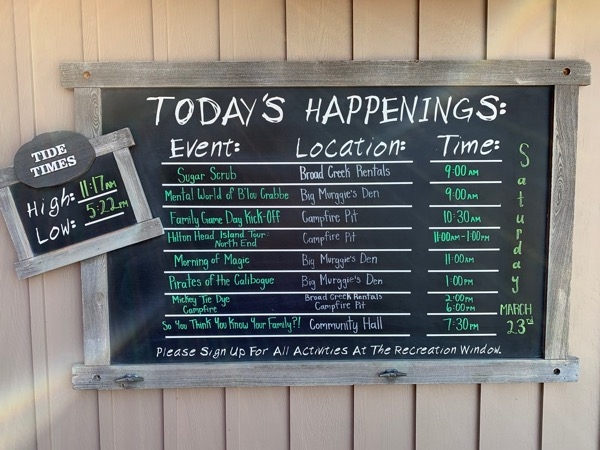 TODAY'S HAPPENINGS:
Event: Location: Time:
Sugar Scrub Broad Creek Rentals 9:00 AM
Mental World of B'lou Crabbe Big Murggie's Den 9:00 AM
Family Game Day Kick-Off Campfire Pit 10:30 AM
Hilton Head Island Tour: Campfire Pit 11:00AM-1:00PM
North End
Morning of Magic Big Murggie's Den 11:00 AM
Pirates of the Calibogue Big Murggie's Den 1:00 PM
Mickey Tie Dye Broad Creek Rentals 2:00 PM
Campfire Campfire Pit 6:00 PM
So You Think You Know Your Family?! Community Hall 7:30 PM
Please Sign Up For All Activities At The Recreation Window.
Saturday
MARCH
23rd
TIDE
TIMES
High: 11:17 AM
Low: 5:22 PM